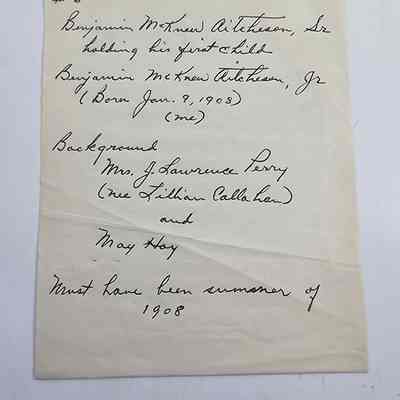 Benjamin McKnew Aitcheson, Sr
holding his first child
Benjamin McKnew Aitcheson, Jr
(Born Jan. 9, 1908)
(me)
Background
Mrs. J. Lawrence Perry
(nee Lillian Callahan)
and
May Hay
Must have been summer of
1908